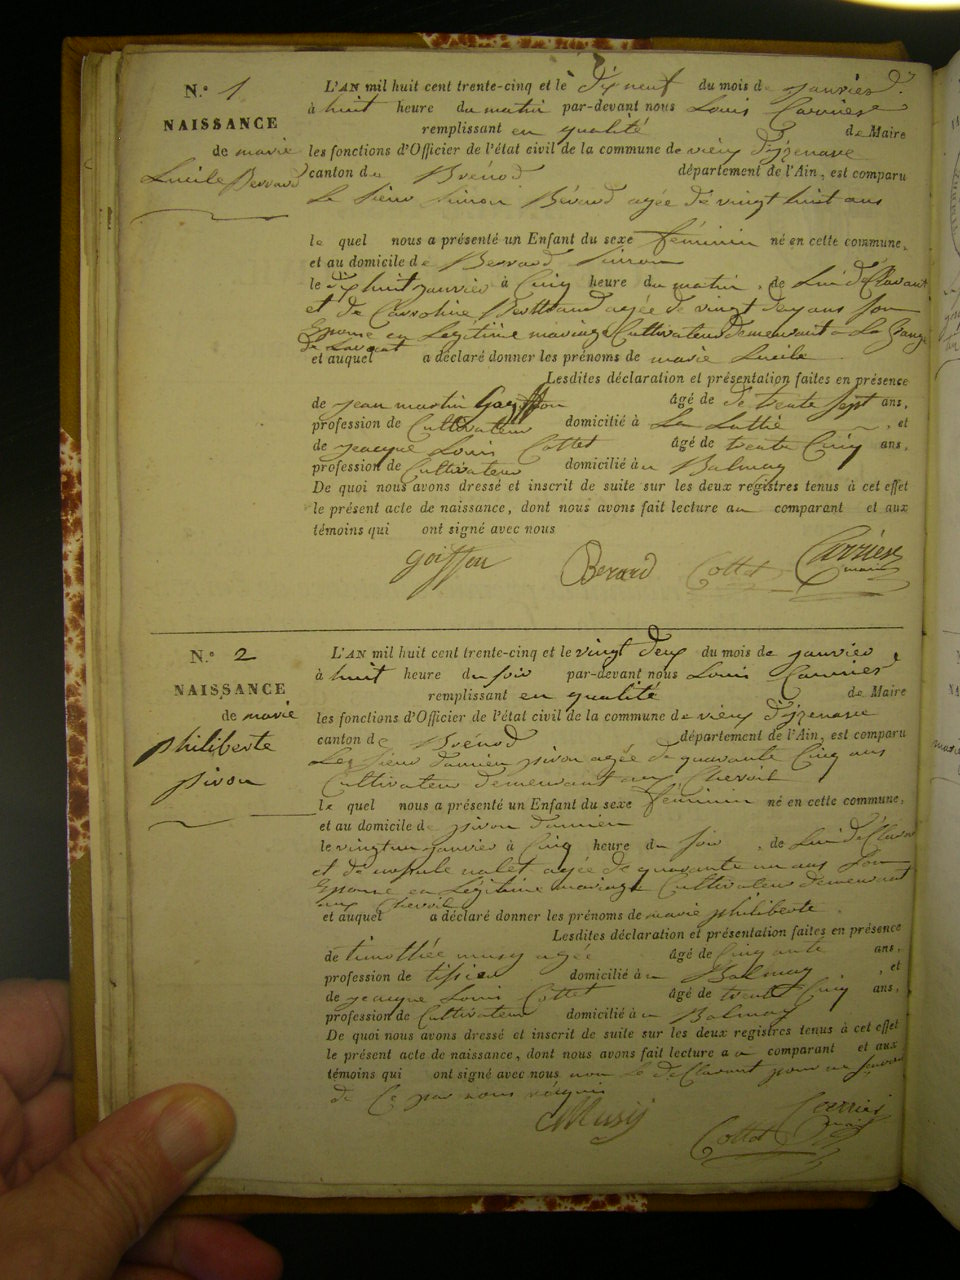 N.° 1
NAISSANCE
de marie
Lucile Berrard
L'AN mil huit cent trente-cinq et le dix neuf du mois de janvier
à huit heure du matin par-devant nous Louis Carrier
remplissant en qualité de Maire
les fonctions d'Officier de l'état civil de la commune de vieux d'izenave
canton du Brénod département de l'Ain, est comparu
Le sieur simon Bérard agée de vingt huit ans
le quel nous a présenté un Enfant du sexe féminin né en cette commune,
et au domicile de Berrard simon
le dix huit janvier à Cinq heure du matin, de Lui déClarant
et de Carroline Berttrand agée de vingt deux ans son
Epouse en Légitime mariage Cultivateur demeurant a La Grange
de Lavocat
et auquel a déclaré donner les prénoms de marie Lucile
Lesdites déclaration et présentation faites en présence
de jean martin Goiffon âgé de trente sept ans,
profession de Cultivateur domicilié à , et
de jacque Louis Cottet âgé de trente Cinq ans,
profession de Cultivateur domicilié à Balmay
De quoi nous avons dressé et inscrit de suite sur les deux registres tenus à cet effet
le présent acte de naissance, dont nous avons fait lecture au comparant et aux
témoins qui ont signé avec nous
goiffon Berard Cottet Carrier
maire
N.° 2
NAISSANCE
de marie
philiberte
pivon
L'AN mil huit cent trente-cinq et le vingt deux du mois de janvier
à huit heure du soir par-devant nous Louis Carrier
remplissant en qualité de Maire
les fonctions d'Officier de l'état civil de la commune de vieux d'izenave
canton de Brénod département de l'Ain, est comparu
Le sieur damien pivon agée de quarante Cinq ans
Cultivateur demeurant aux Chevril
le quel nous a présenté un Enfant du sexe féminin né en cette commune,
et au domicile de pivon damien
le vingt un janvier à Cinq heure du soir, de Lui déClarant
et de nalet agée de quarante un ans son
Epouse en Légitime mariage Cultivateur demeurant
aux Chevril
et auquel a déclaré donner les prénoms de marie philiberte.
Lesdites déclaration et présentation faites en présence
de timothée musy agée âgé de Cinquante ans,
profession de tisier domicilié à Balmay, et
de jacque Louis Cottet âgé de trente Cinq ans,
profession de Cultivateur domicilié à Balmay
De quoi nous avons dressé et inscrit de suite sur les deux registres tenus à cet effet
le présent acte de naissance, dont nous avons fait lecture au comparant et aux
témoins qui ont signé avec nous non le déClarant pour ne savoir
de Ce par nous réquis
Musy Cottet Carrier
maire